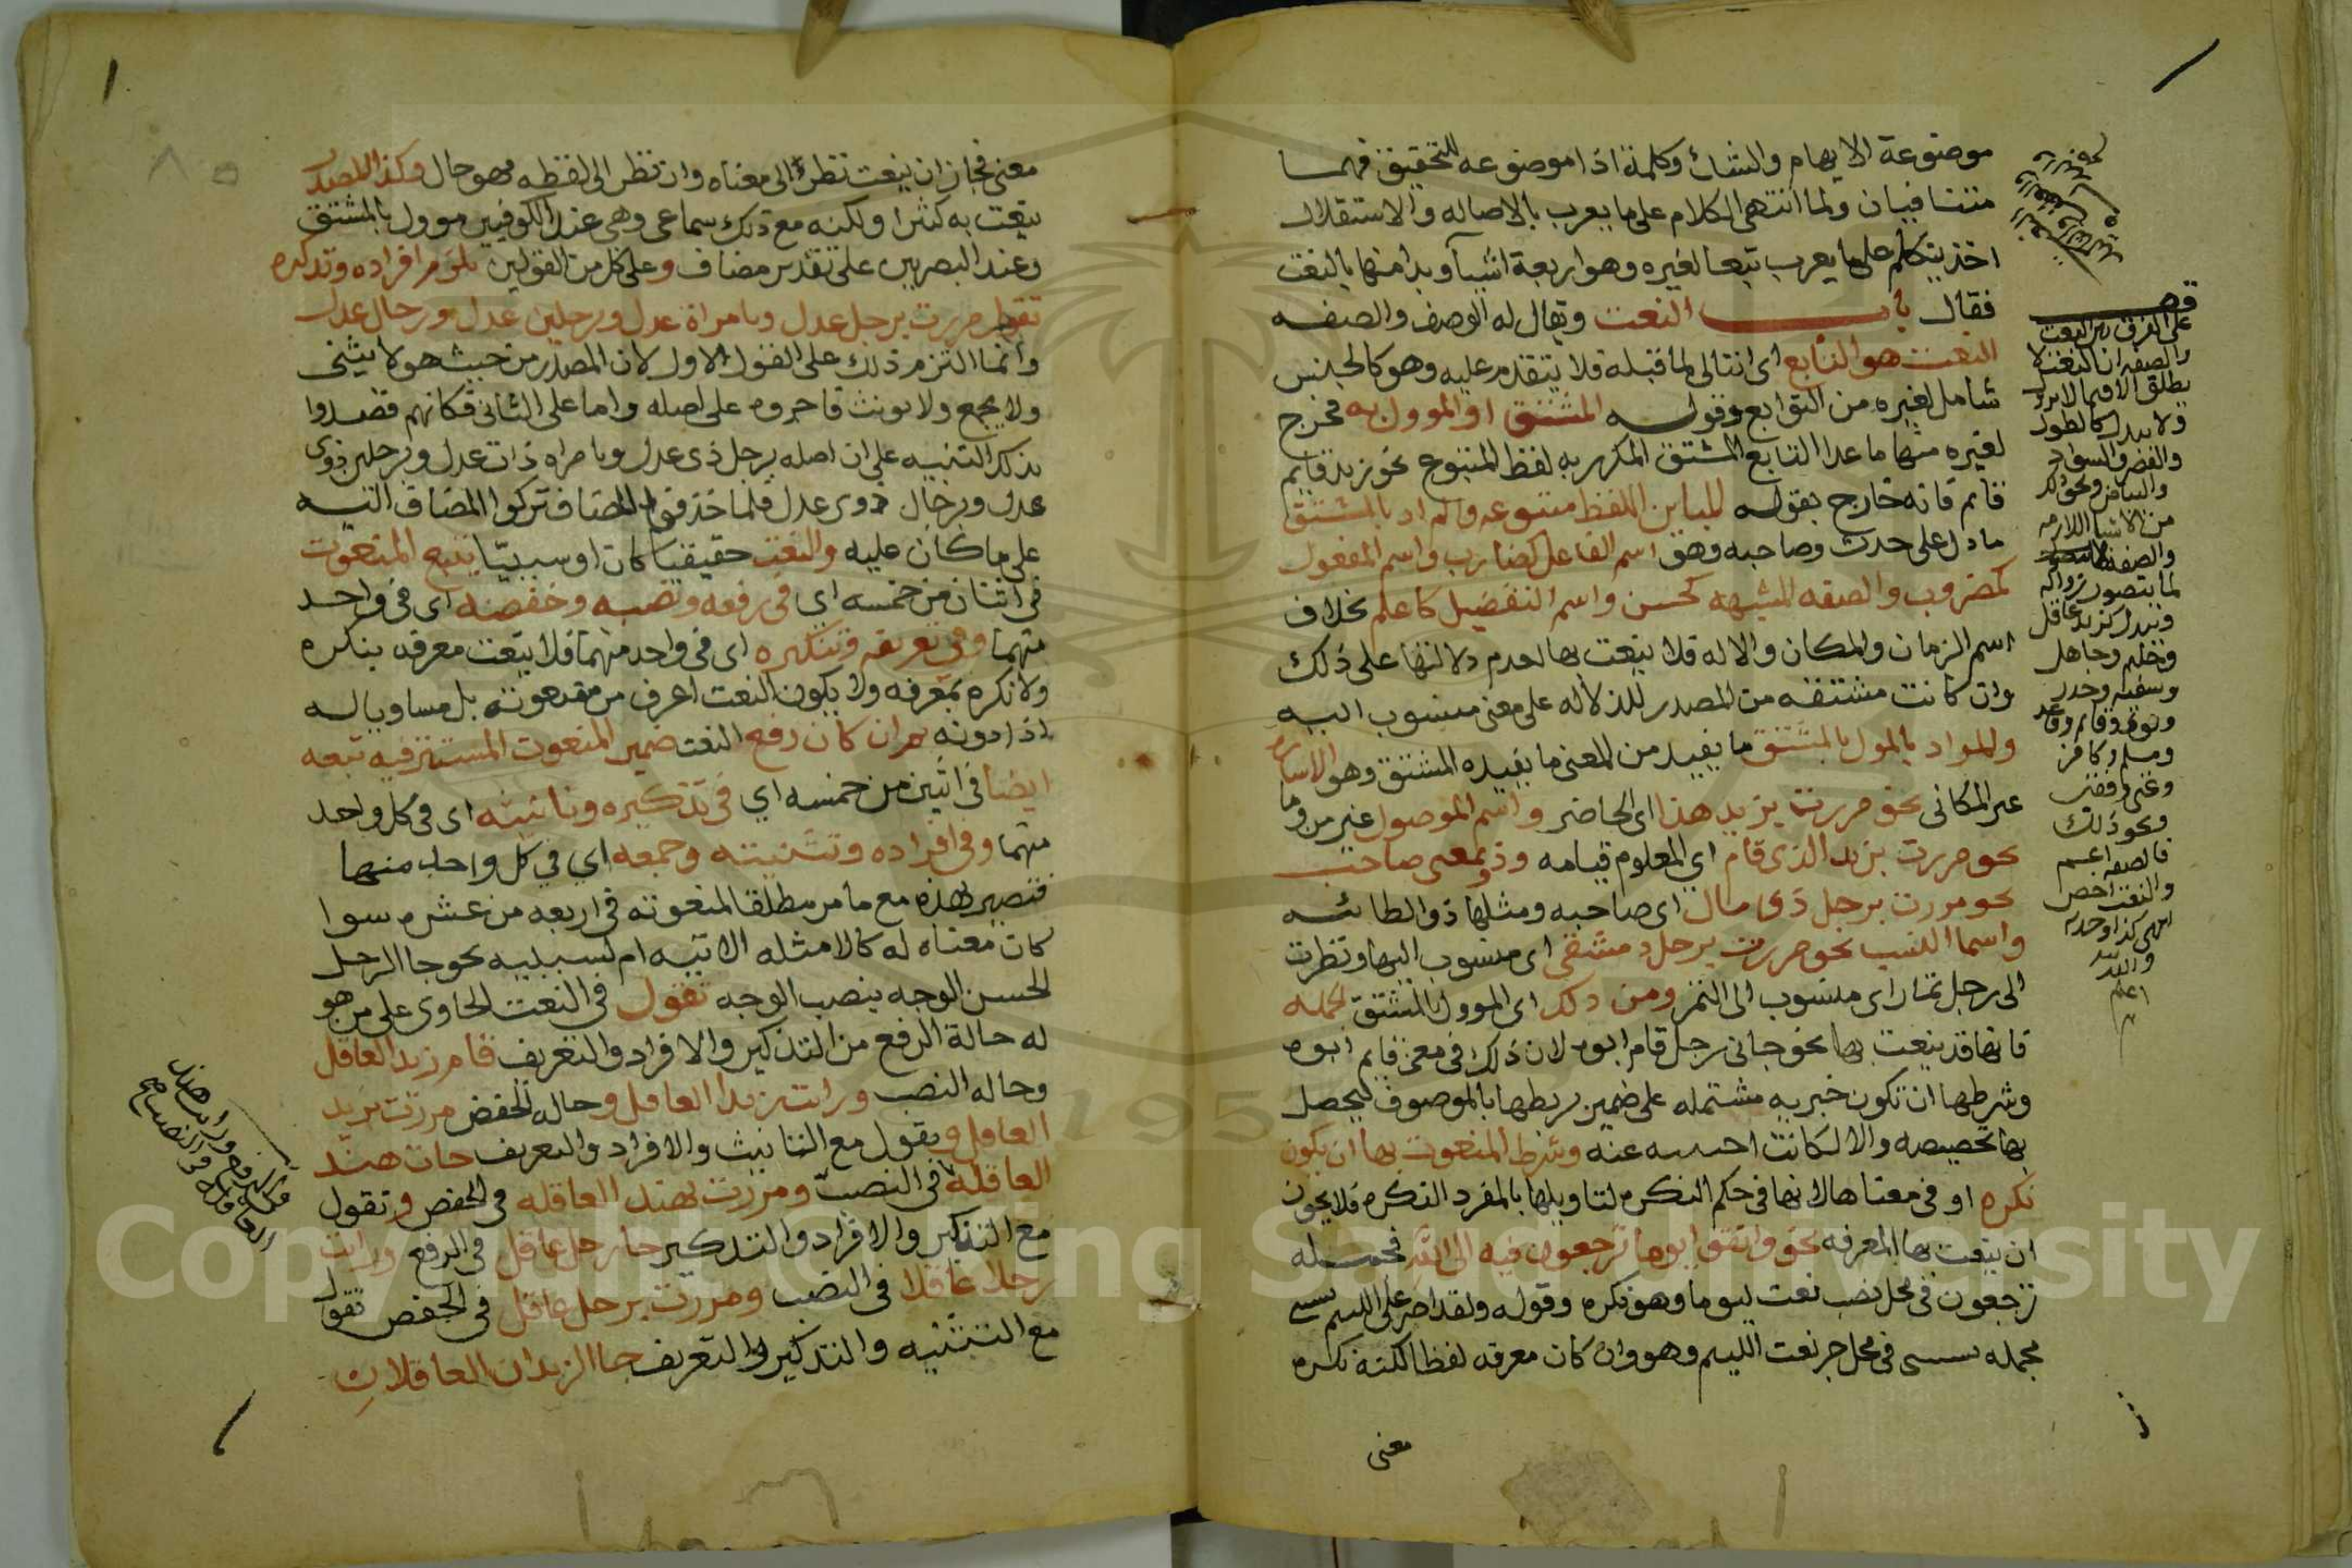 موضوعة الايهام والشك وكلمة اذا موضوعه للتحقيق فهما
متنافيان ولما انتهى الكلام على ما يعرب بالاصاله والاستقلال
اخذ يتكلم على ما يعرب تبعا لغيره وهو اربعة اشيآ وبدا منها بالنعت
فقال باب النعت ويقال له الوصف والصفه
النعت هو التابع اى التالى لما قبله فلا يتقدم عليه وهو كالجنس
شامل لغيره من التوابع وقوله المشتق او الموول به مخرج
لغيره منها ما عدا التابع المشتق المكرر به لفظ المتبوع نحو زيد قايم
قايم فانه خارج بقوله المباين اللفظ متبوعه والمراد بالمشتق
ما دل على حدث وصاحبه وهو اسم الفاعل كضارب واسم المفعول
كمضروب والصفه المشبهه كحسن واسم التفضيل كاعلم بخلاف
اسم الزمان والمكان والاله فلا ينعت بها لعدم دلالتها على ذلك
وان كانت مشتقه من المصدر للدلاله على معنى منسوب اليه
والمراد بالمول بالمشتق ما يفيد من المعنى ما يفيده المشتق وهو الاساره
غير المكانى نحو مررت بزيد هذا اى الحاضر واسم الموصول غير من وما
نحو مررت بزيد الذى قام اي المعلوم قيامه وذو بمعنى صاحب
نحو مررت برجل ذى مال اى صاحبه ومثلها ذو الطائيه
واسما النسب نحو مررت برجل دمشقى اى منسوب اليها ونظرت
الى رجل تمار اى منسوب الى التمر ومن ذلك اى الموول بالمشتق الجمله
فانها قد ينعت بها نحو جانى رجل قام ابوه لان ذلك فى معنى قايم ابوه
وشرطها ان تكون خبريه مشتمله على ضمير يربطها بالموصوف ليحصل
بها تخصيصه والا لكانت اجنبيه عنه وشرط المنعوت بها ان يكون
نكره او فى معناها لانها فى حكم النكره لتاويلها بالمفرد النكره فلا يجوز
ان ينعت بها المعرفه نحو واتقوا يوما ترجعون فيه الى الله فجمله
ترجعون فى محل نصب نعت ليوما وهو نكره وقوله ولقد امر على الليم يسبنى
فجمله يسبنى فى محل جر نعت الليم وهو وان كان معرفه لفظا لكنه نكره
معنى
على الفرق بين النعت
والصفه ان النعت لا
يطلق الا فيما لا يزول
ولا يبدل كالطول
والقصر والسواد
والبياض ونحو ذلك
من الاشيا اللازمه
والصفه
لما يتصور زواله
ويبدل كزيد عاقل
وحليم وجاهل
وسفيه
وقايم وقاعد
ومسلم وكافر
وغنى وفقير
ونحو ذلك
فالصفه اعم
والنعت اخص
انتهى كذا وجدته
والله
اعلم
معنى فجاز ان ينعت نظرا الى معناه وان نظر الى لفظه فهو حال وكذا المصدر
ينعت به كثيرا ولكنه مع ذلك سماعى وهى عند الكوفيين موول بالمشتق
وعند البصريين على تقدير مضاف وعلى كل من القولين يلزم افراده وتذكيره
تقول مررت برجل عدل وبامراة عدل وبرجلين عدل وبرجال عدل
وانما التزم ذلك على القول الاول لان المصدر من حيث هو لا يثنى
ولا يجمع ولا يونث فاجروه على اصله واما على الثانى فكانهم قصدوا
بذلك التنبيه على ان اصله برجل ذى عدل وبامراه ذات عدل وبرجلين ذوى
عدل وبرجال ذوى عدل فلما حذفوا المضاف تركوا المضاف اليه
على ما كان عليه والنعت حقيقيا كان او سببيّا يتبع المنعوت
فى اثنان من خمسه اي فى رفعه ونصبه وخفضه اى فى واحد
منهما وفى تعريفه وتنكيره اى فى واحد منهما فلا ينعت معرفه بنكره
ولا نكره بمعرفه ولا يكون النعت اعرف من منعوته بل مساويا له
اذا دونه ثم ان كان رفع النعت ضمير المنعوت المستتر فيه تبعه
ايضا فى اثنين من خمسه اي فى تذكيره وتانيثه اى فى كل واحد
منهما وفى افراده وتثنيته وجمعه اي في كل واحد منهما
فتصير بهذه مع ما مر مطلقا لمنعوته فى اربعه من عشره سوا
كان معناه له كالامثله الاتيه ام لسببيه نحو جا الرجل
الحسن الوجه بنصب الوجه تقول فى النعت الحاوى على من هو
له حالة الرفع من التذكير والافراد والتعريف قام زيد العاقل
وحاله النصب ورايت زيدا العاقل وحاله الخفض مررت بزيد
العاقل ويقول مع التانيث والافراد والتعريف جات هند
العاقلة فى النصب ومررت بهند العاقله فى الخفض وتقول
مع التنكير والافراد والتذكير جا رجل عاقل فى الرفع ورايت
رجلا عاقلا فى النصب ومررت برجل عاقل فى الخفض تقول
مع التثنيه والتذكير والتعريف جا الزيدان العاقلان
ورايت هند
العاقله فى النصب صح